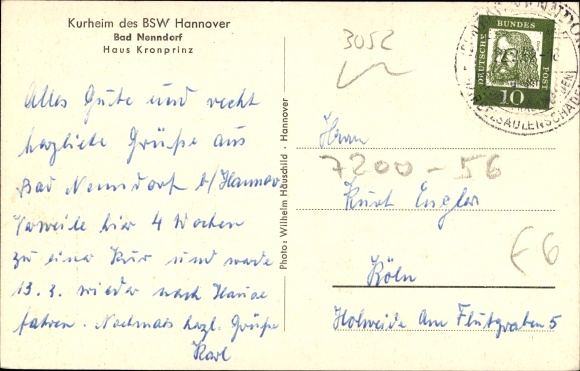 Kurheim des BSW Hannover
Bad Nenndorf
Haus Kronprinz
Alles Gute und recht
herzliche Grüße aus
Bad Nenndorf b/Hannov.
Verweile hier 4 Wochen
zu einer Kur und werde
13.3. wieder nach Hause
fahren. Nochmals herzl. Grüße
Karl
Photo: Wilhelm Häuschild · Hannover
3052
DEUTSCHE BUNDESPOST
10
Herrn
7200-56
Kurt Engler
E6
Köln
Holweide Am Flutgraben 5